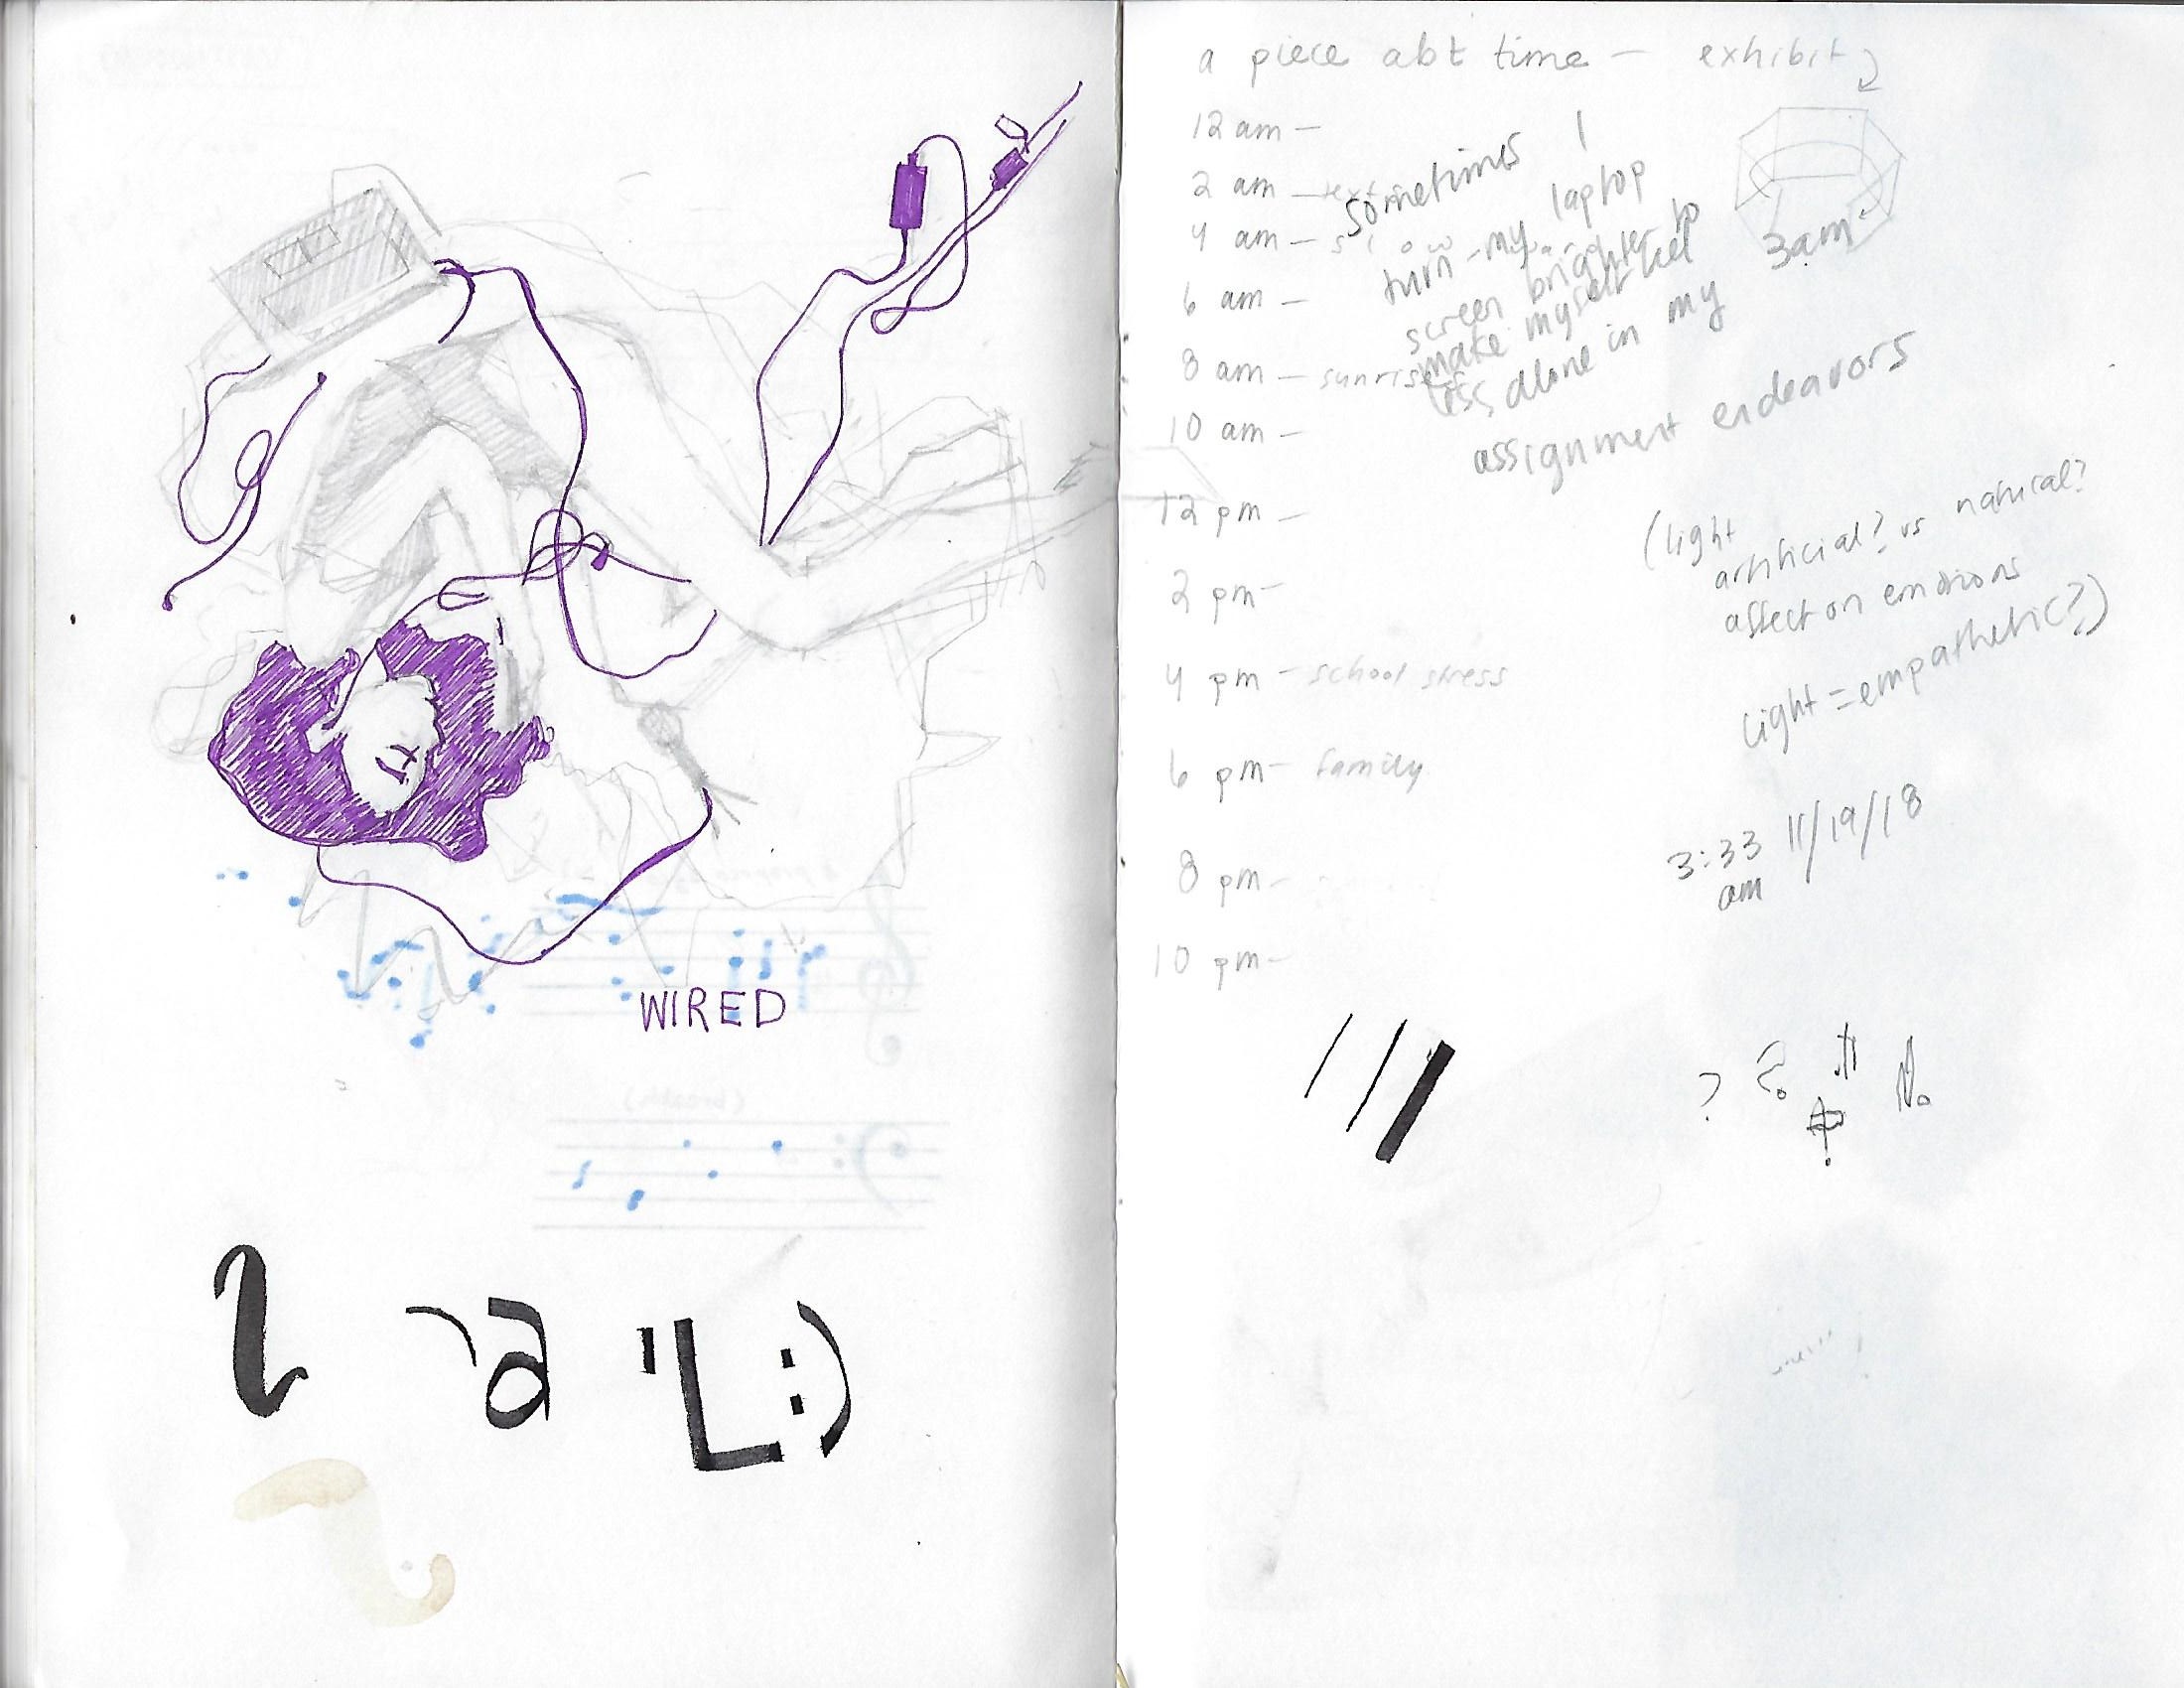 WIRED
a piece abt time — exhibit
12 am —
2 am —
4 am —
6 am —
8 am — sunrise
10 am —
12 pm —
2 pm —
4 pm — school stress
6 pm — family
8 pm —
10 pm —
sometimes I
turn my laptop
screen brighter to
make myself feel
less alone in my 3am
assignment endeavors
(light
artificial? vs natural?
affect on emotions
light = empathetic?)
3:33 11/19/18
am